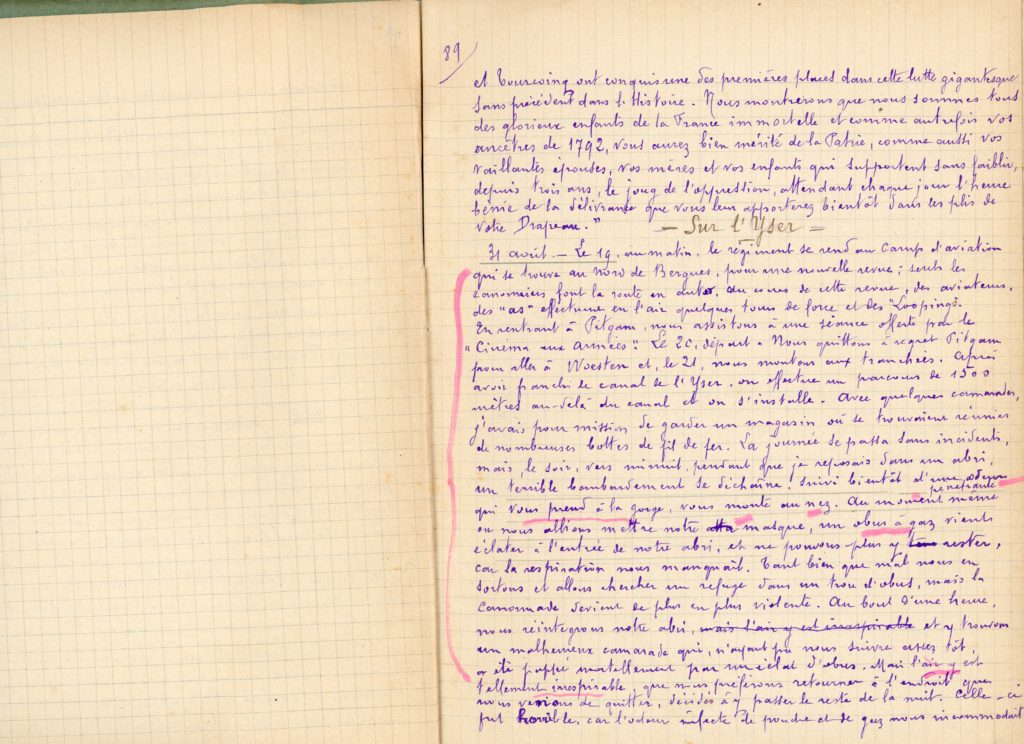 89
et Tourcoing ont conquis une des premières places dans cette lutte gigantesque
sans précédent dans l'Histoire. Nous montrerons que nous sommes tous
des glorieux enfants de la France immortelle et comme autrefois vos
ancêtres de 1792, vous aurez bien mérité de la Patrie, comme aussi vos
vaillantes épouses, vos mères et vos enfants qui supportent sans faiblir,
depuis trois ans, le joug de l'oppression, attendant chaque jour l'heure
bénie de la délivrance que vous leur apporterez bientôt dans les plis de
votre Drapeau."
- Sur l'Yser -
31 août. - Le 19, au matin, le régiment se rend au camp d'aviation
qui se trouve au nord de Bergues, pour une nouvelle revue ; seuls les
canonniers font la route en auto. Au cours de cette revue, des aviateurs,
des "as" effectuent en l'air quelques tours de force et des "Loopings".
En rentrant à Pitgam, nous assistons à une séance offerte par le
"Cinéma aux Armées". Le 20, départ. Nous quittons à regret Pitgam
pour aller à Woesten et, le 21, nous montons aux tranchées. Après
avoir franchi le canal de l'Yser, on effectue un parcours de 1500
mètres au-delà du canal et on s'installe. Avec quelques camarades,
j'avais pour mission de garder un magasin où se trouvaient réunies
de nombreuses bottes de fil de fer. La journée se passa sans incidents,
mais, le soir, vers minuit, pendant que je reposais dans un abri,
un terrible bombardement se déchaîne ! suivi bientôt d'une odeur
pénétrante
qui vous prend à la gorge, vous monte au nez. Au moment même
ou nous allions mettre notre masque, un obus à gaz vient
éclater à l'entrée de notre abri, et ne pouvons plus y rester,
car la respiration nous manquait. Tant bien que mal nous en
sortons et allons chercher un refuge dans un trou d'obus, mais la
canonnade devient de plus en plus violente. Au bout d'une heure,
nous réintégrons notre abri, mais l'air y est irrespirable et y trouvons
un malheureux camarade qui, n'ayant pu nous suivre assez tôt,
a été frappé mortellement par un éclat d'obus. Mais l'air y est
tellement irrespirable, que nous préférons retourner à l'endroit que
nous venions de quitter, décidés à y passer le reste de la nuit. Celle-ci
fut horrible, car l'odeur infecte de poudre et de gaz nous incommodait